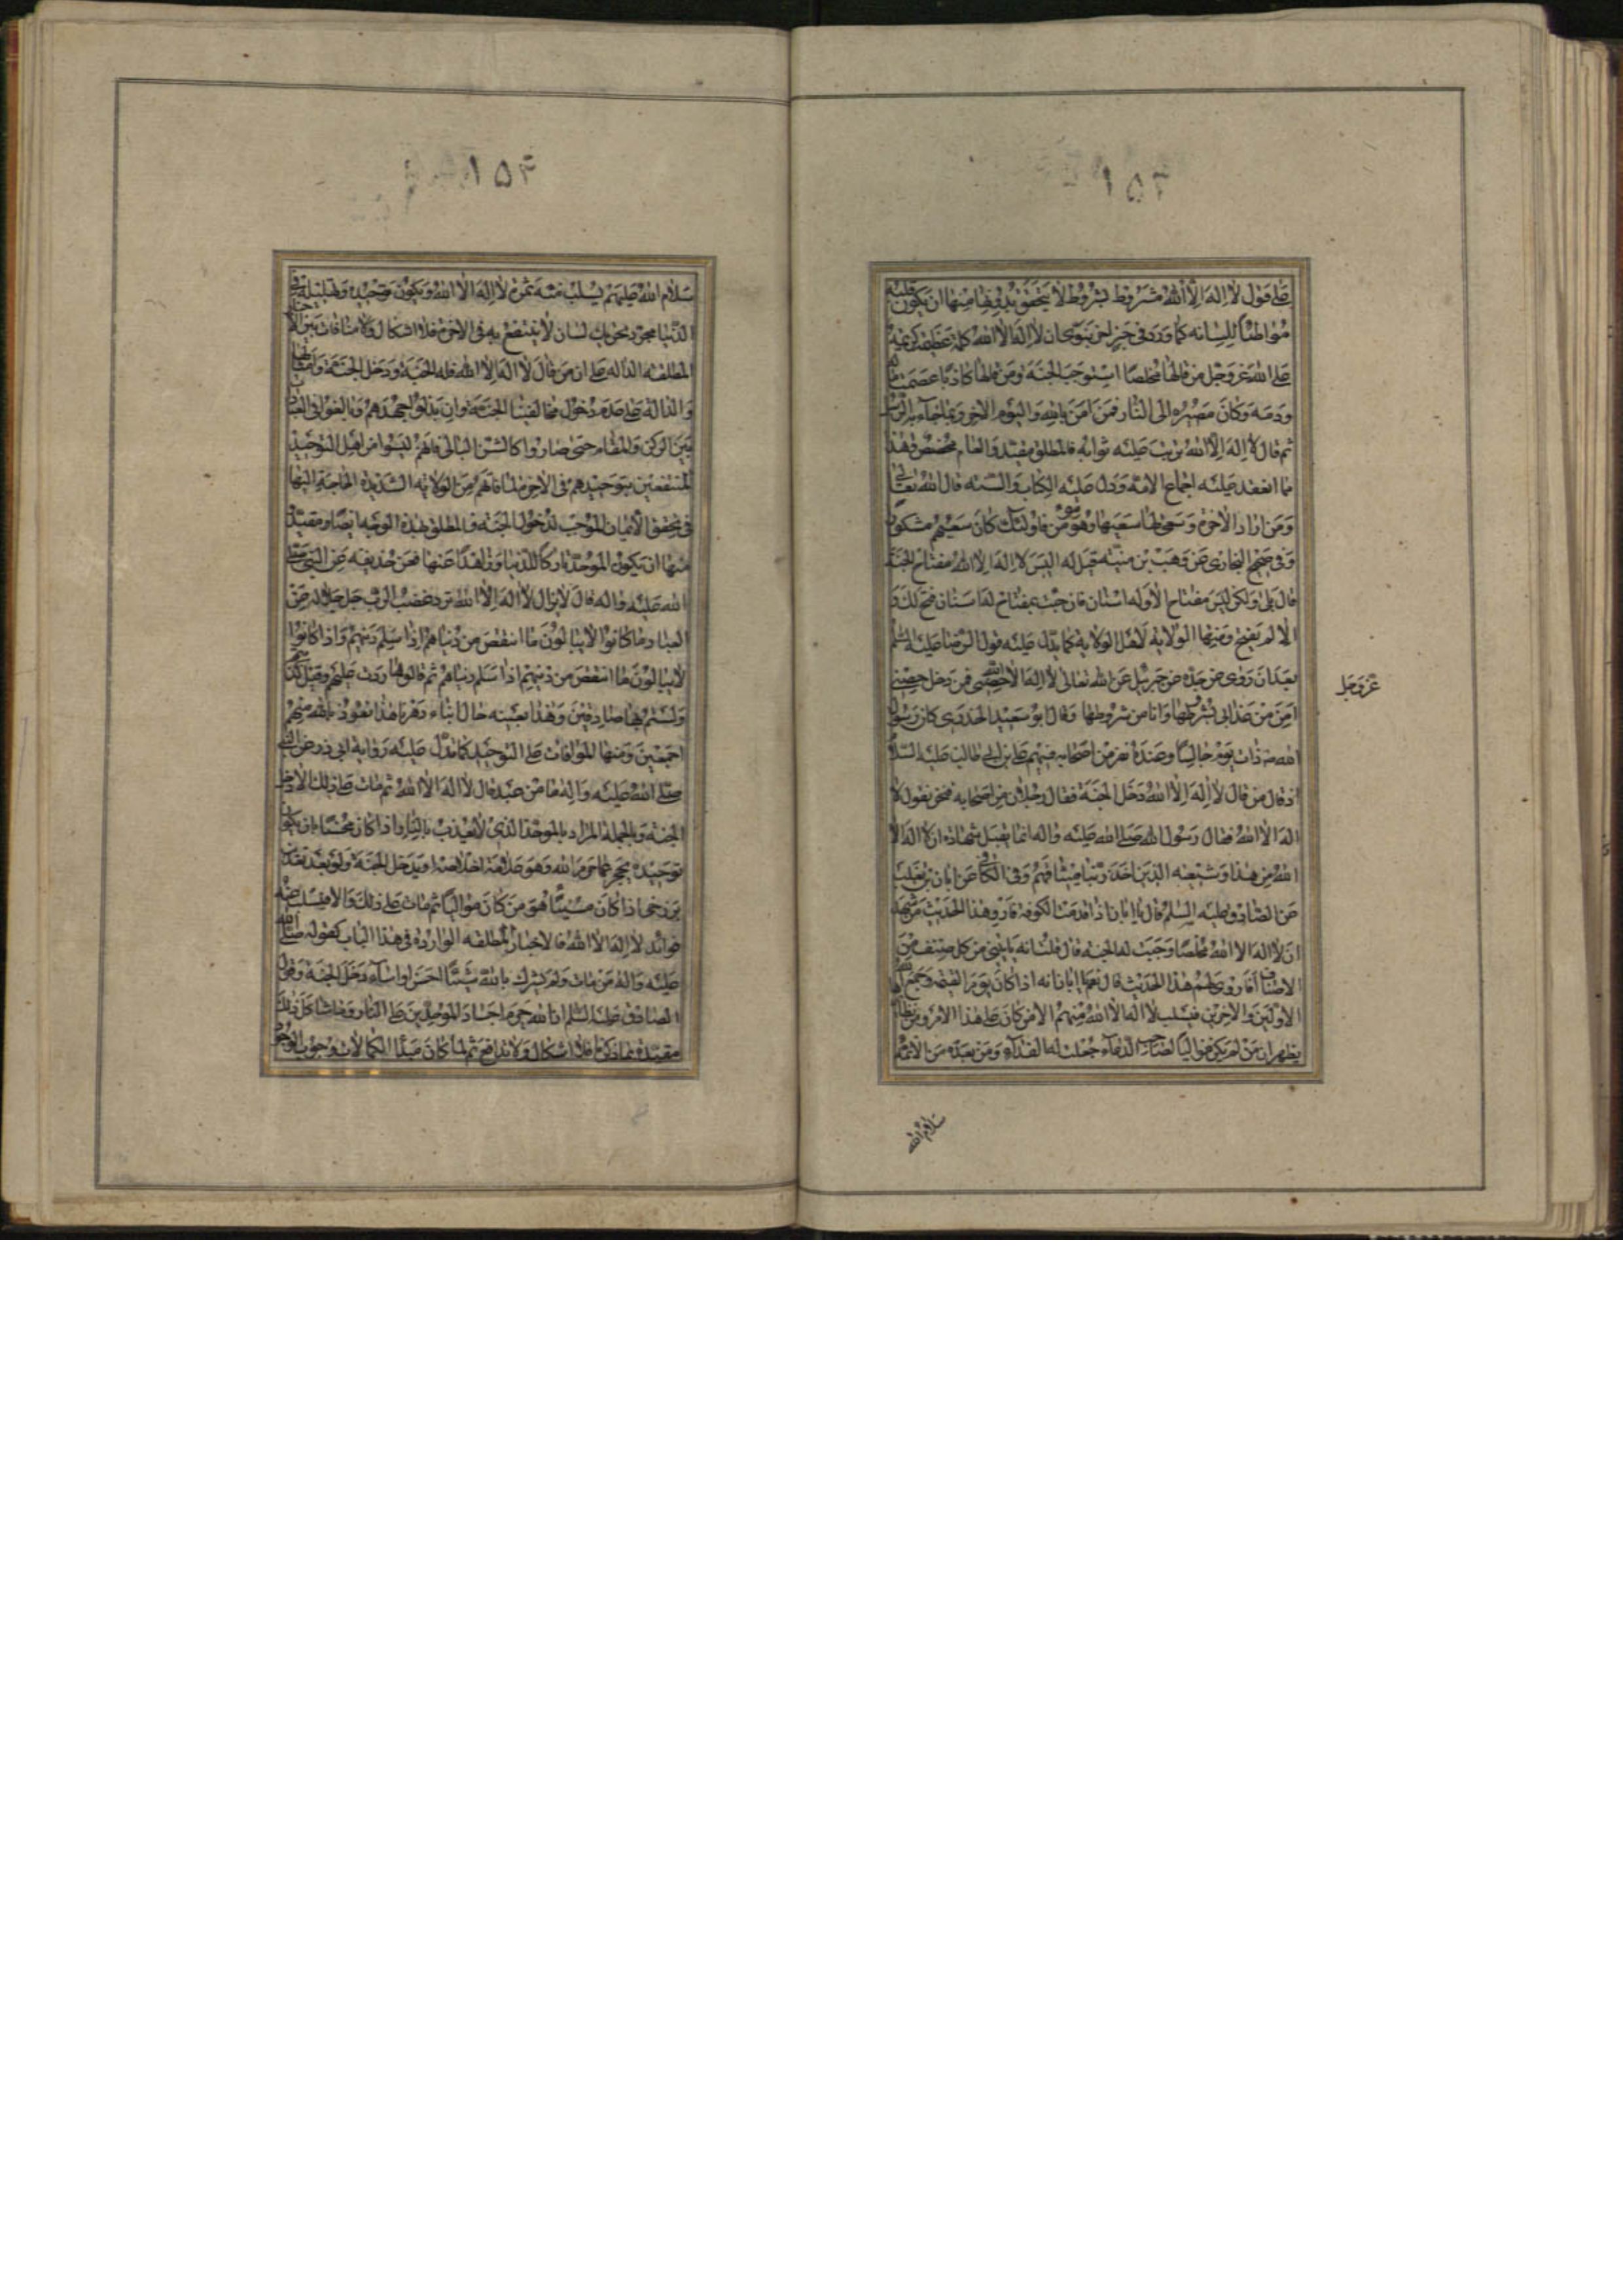 ۱۵۳
على قول لا اله الا الله مشروط بشروط لا يتحقق بدونها منها ان يكون قلبه
مواطئا للسانه كما ورد فى خبر اخر نبوى ان لا اله الا الله كلمة عظيمة كريمة
على الله عز وجل من قالها مخلصا استوجب الجنة ومن قالها كاذبا عصمت ماله
ودمه وكان مصيره الى النار فمن امن بالله واليوم الاخر وبما جاء به الرسل
ثم قال لا اله الا الله ترتب عليه ثوابه فالمطلق مقيد والعام مخصص وهذا
مما انعقد عليه اجماع الامة ودل عليه الكتاب والسنة قال الله تعالى
ومن اراد الاخرة وسعى لها سعيها وهو مؤمن فاولئك كان سعيهم مشكورا
وفى صحيح البخارى عن وهب بن منبه قيل له اليس لا اله الا الله مفتاح الجنة
قال بلى ولكن ليس مفتاح الا وله اسنان فان جئت بمفتاح له اسنان فتح لك و
الا لم يفتح ومنها الولاية لاهل الولاية كما يدل عليه قول الرضا عليه السلم
بعد ان روى عن جده عن جبرئيل عن الله تعالى لا اله الا الله حصنى فمن دخل حصنى
امن من عذابى بشروطها وانا من شروطها وقال ابو سعيد الخدرى كان رسول
الله ص ذات يوم جالسا وعنده نفر من اصحابه فيهم على بن ابى طالب عليه السلام
اذ قال من قال لا اله الا الله دخل الجنة فقال رجلان من اصحابه فنحن نقول لا
اله الا الله فقال رسول الله صلى الله عليه واله انما تقبل شهادة ان لا اله الا
الله من هذا وشيعته الذين اخذ ربنا ميثاقهم وفى الكافى عن ابان بن تغلب
عن الصادق عليه السلم قال يا ابان اذا قدمت الكوفة فارو هذا الحديث من شهد
ان لا اله الا الله مخلصا وجبت له الجنة قال قلت انه ياتينى من كل صنف من
الاصناف افاروى لهم هذا الحديث قال نعم يا ابان انه اذا كان يوم القيمة وجمع الله
الاولين والاخرين فيسلب لا اله الا الله منهم الا من كان على هذا الامر ومن
يظهر ان من لم يكن مواليا لصاحب الدعاء جعلت له الفداء ومن بعده من الائمة
عز وجل
سلام الله
۱۵۴
سلام الله عليهم يسلب منه ثمرة لا اله الا الله ويكون توحيده وتهليله فى
الدنيا مجرد تحريك لسان لا ينتفع به فى الاخرة فلا اشكال ولا منافات بين الاخبار
المطلقة الدالة على ان من قال لا اله الا الله فله الجنة ودخل الجنة
والدالة على عدم دخول مخالفينا الجنة وان بذلوا جهدهم وبالغوا فى العبادة
بين الركن والمقام حتى صاروا كالشن البالى فانهم ليسوا من اهل التوحيد
المنتفعين بتوحيدهم فى الاخرة لما فاتهم من الولاية الشديدة الحاجة اليها
فى تحقق الايمان الموجب لدخول الجنة فالمطلق بهذه الوجه ايضا مقيد
منها ان يكون الموحد تاركا للدنيا وزاهدا عنها فعن حذيفة عن النبى صلى
الله عليه واله قال لا يزال لا اله الا الله ترد غضب الرب جل جلاله عن
العباد ما كانوا لا يبالون ما انتقص من دنياهم اذا سلم دينهم واذا كانوا
لا يبالون ما انتقص من دينهم اذا سلم دنياهم ثم قالوها ردت عليهم وقيل كذبتم
ولستم بها صادقين وهذا بعينه حال ابناء دهرنا هذا نعوذ بالله منهم
اجمعين ومنها الموافات على التوحيد كما يدل عليه رواية ابى ذر عن النبى
صلى الله عليه واله ما من عبد قال لا اله الا الله ثم مات على ذلك الا دخل
الجنة وبالجملة المراد بالموحد الذى لا يعذب بالنار اذا كان محسنا بان يكون
توحيده يحجزه عما حرم الله وهو علامة اخلاصه او يدخل الجنة ولو بعد تعذيب
برزخى اذا كان مسيئا هو من كان مواليا ثم مات على ذلك والا فيسلب عنه
فوائد لا اله الا الله فالاخبار المطلقة الواردة فى هذا الباب كقوله صلى الله
عليه واله من مات ولم يشرك بالله شيئا احسن او اساء دخل الجنة وقول
الصادق عليه السلم ان الله حرم اجساد الموحدين على النار وما شاكل ذلك
مقيدة بما ذكرنا فلا اشكال ولا تدافع ثم لما كان مبدا الكمالات وجوب الوجود